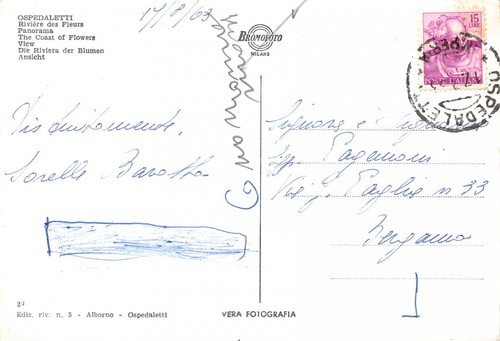 OSPEDALETTI
Rivière des Fleurs
Panorama
The Coast of Flowers
View
Die Riviera der Blumen
Ansicht
17/8/63
BROMOFOTO
MILANO
15
LIRE
POSTE ITALIANE
OSPEDALETTI
Distintamente
Sorelle
Signora e
Pagenoni
Via Paglia n 33
Bergamo
Ediz. riv. n. 5 - Alborno - Ospedaletti
VERA FOTOGRAFIA